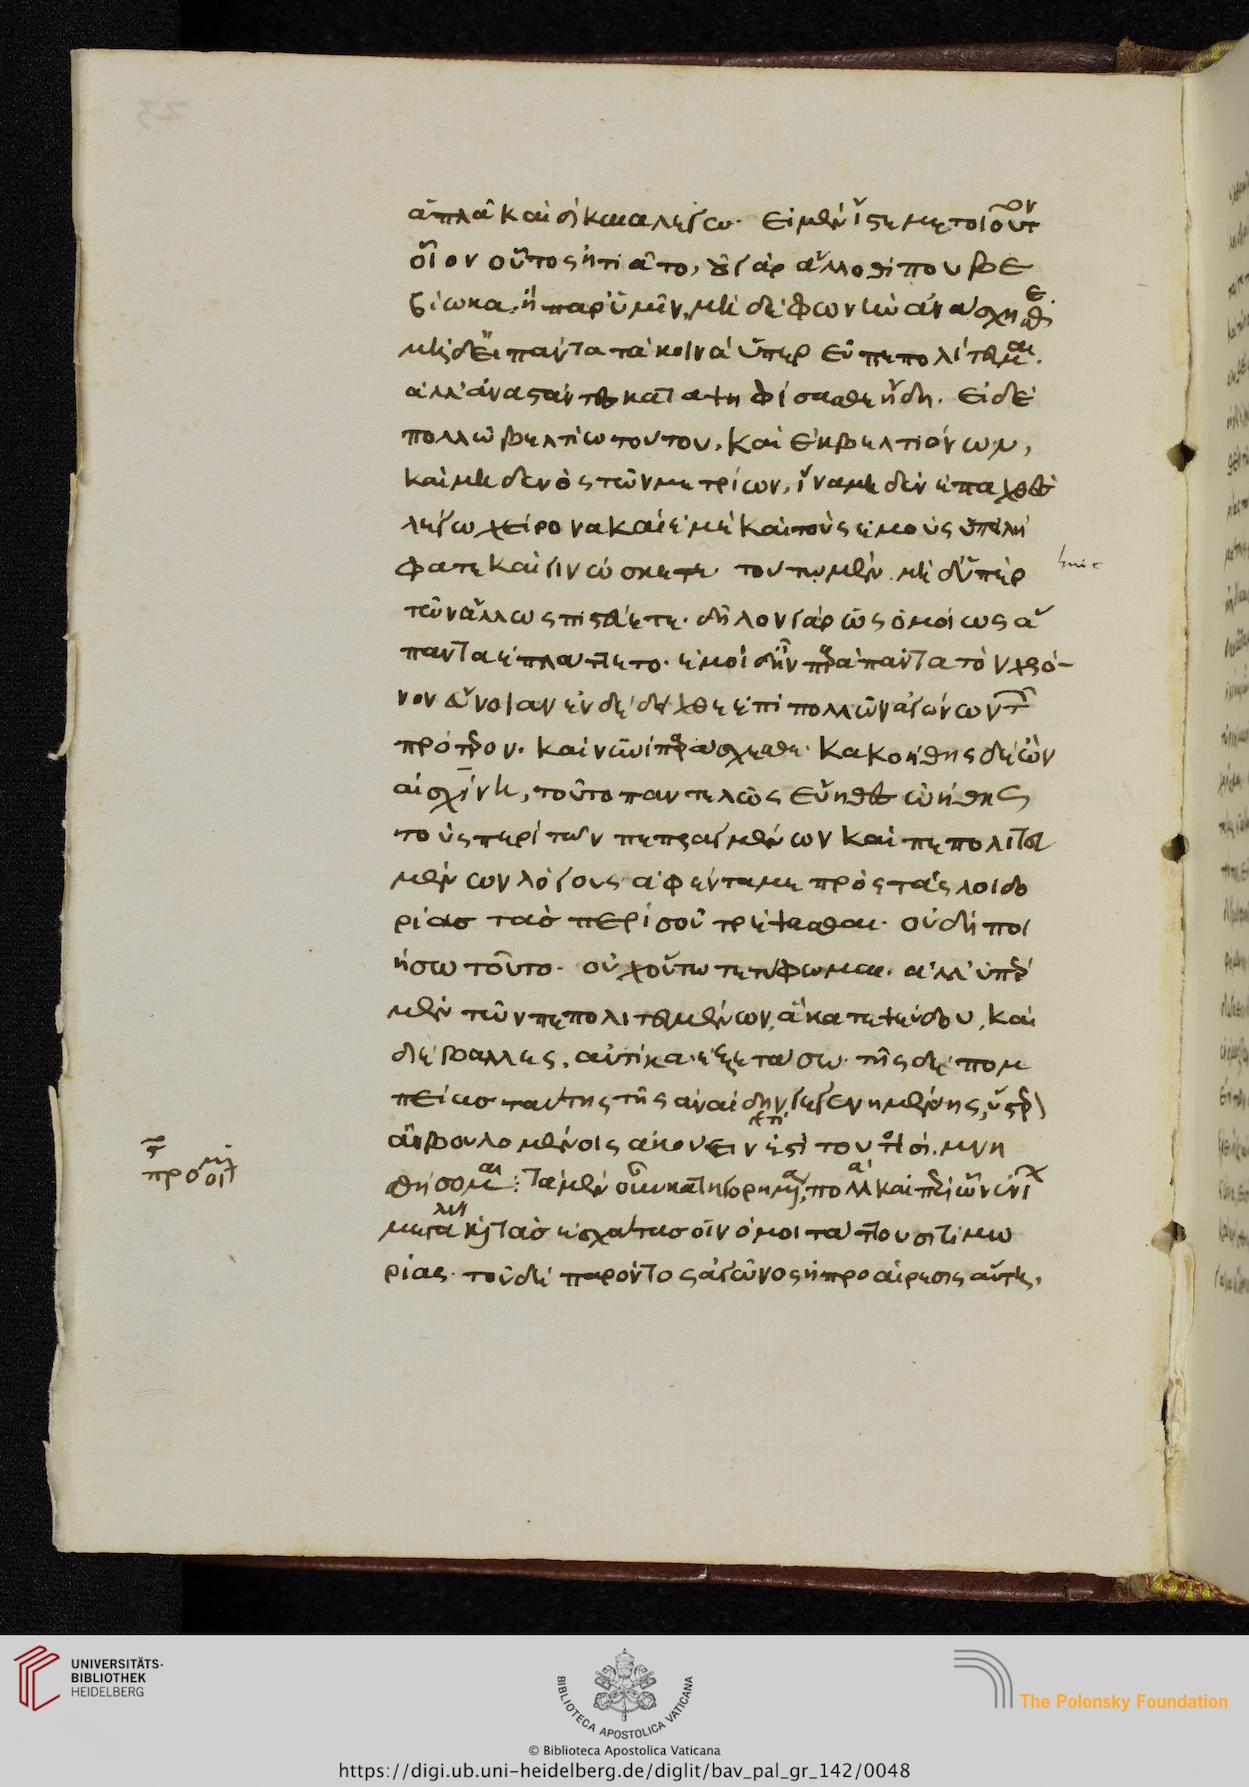 ἁπλᾶ καὶ δίκαια λέγω. εἰ μὲν ἴστε με τοιοῦτον
οἷον οὗτος ᾐτιᾶτο, οὐ γὰρ ἄλλοθί που βε
βίωκα ἢ παρ' ὑμῖν, μηδὲ φωνὴν ἀνάσχησθε.
μηδ' εἰ πάντα τὰ κοινὰ ὑπερεῦ πεπολίτευμαι.
ἀλλ' ἀναστάντες καταψηφίσασθε ἤδη. εἰ δὲ
πολλῷ βελτίω τούτου, καὶ ἐκ βελτιόνων,
καὶ μηδενὸς τῶν μετρίων, ἵνα μηδὲν ἐπαχθὲς
λέγω χείρονα καὶ ἐμὲ καὶ τοὺς ἐμοὺς ὑπειλή
φατε καὶ γινώσκετε τούτῳ μὲν μηδ' ὑπὲρ
τῶν ἄλλων πιστεύετε. δῆλον γὰρ ὡς ὁμοίως ἅ
παντα ἐπλάττετο. ἐμοὶ δ' ἣν παρὰ πάντα τὸν χρό-
νον εὔνοιαν ἐνδέδειχθε ἐπὶ πολλῶν ἀγώνων τῶν
πρότερον. καὶ νυνὶ παράσχεσθε. κακοήθης δ' ὢν
αἰσχίνη, τοῦτο παντελῶς εὔηθες ᾠήθης
τοὺς περὶ τῶν πεπραγμένων καὶ πεπολιτευ
μένων λόγους ἀφέντα με πρὸς τὰς λοιδο
ρίας τὰς περὶ σοῦ τρέψεσθαι. οὐ δὴ ποι
ήσω τοῦτο. οὐχ οὕτω τετύφωμαι. ἀλλ' ὑπὲρ
μὲν τῶν πεπολιτευμένων, ἃ κατεψεύδου, καὶ
διέβαλλες, αὐτίκα ἐξετάσω. τῆς δὲ πομ
πείας ταύτης τῆς ἀναίδην γεγενημένης, ὕστερον
ἂν βουλομένοις ἀκούειν ᾖ τουτοισί. μνη
σθήσομαι: Τὰ μὲν οὖν κατηγορημένα, πολλὰ καὶ περὶ ὧν ἐνί
μεγάλας καὶ τὰς ἐσχάτας οἱ νόμοι τάττουσι τιμω
ρίας. τοῦ δὲ παρόντος ἀγῶνος ἡ προαίρεσις αὕτη,
UNIVERSITÄTS-
BIBLIOTHEK
HEIDELBERG
BIBLIOTECA APOSTOLICA VATICANA
The Polonsky Foundation
© Biblioteca Apostolica Vaticana
https://digi.ub.uni-heidelberg.de/diglit/bav_pal_gr_142/0048